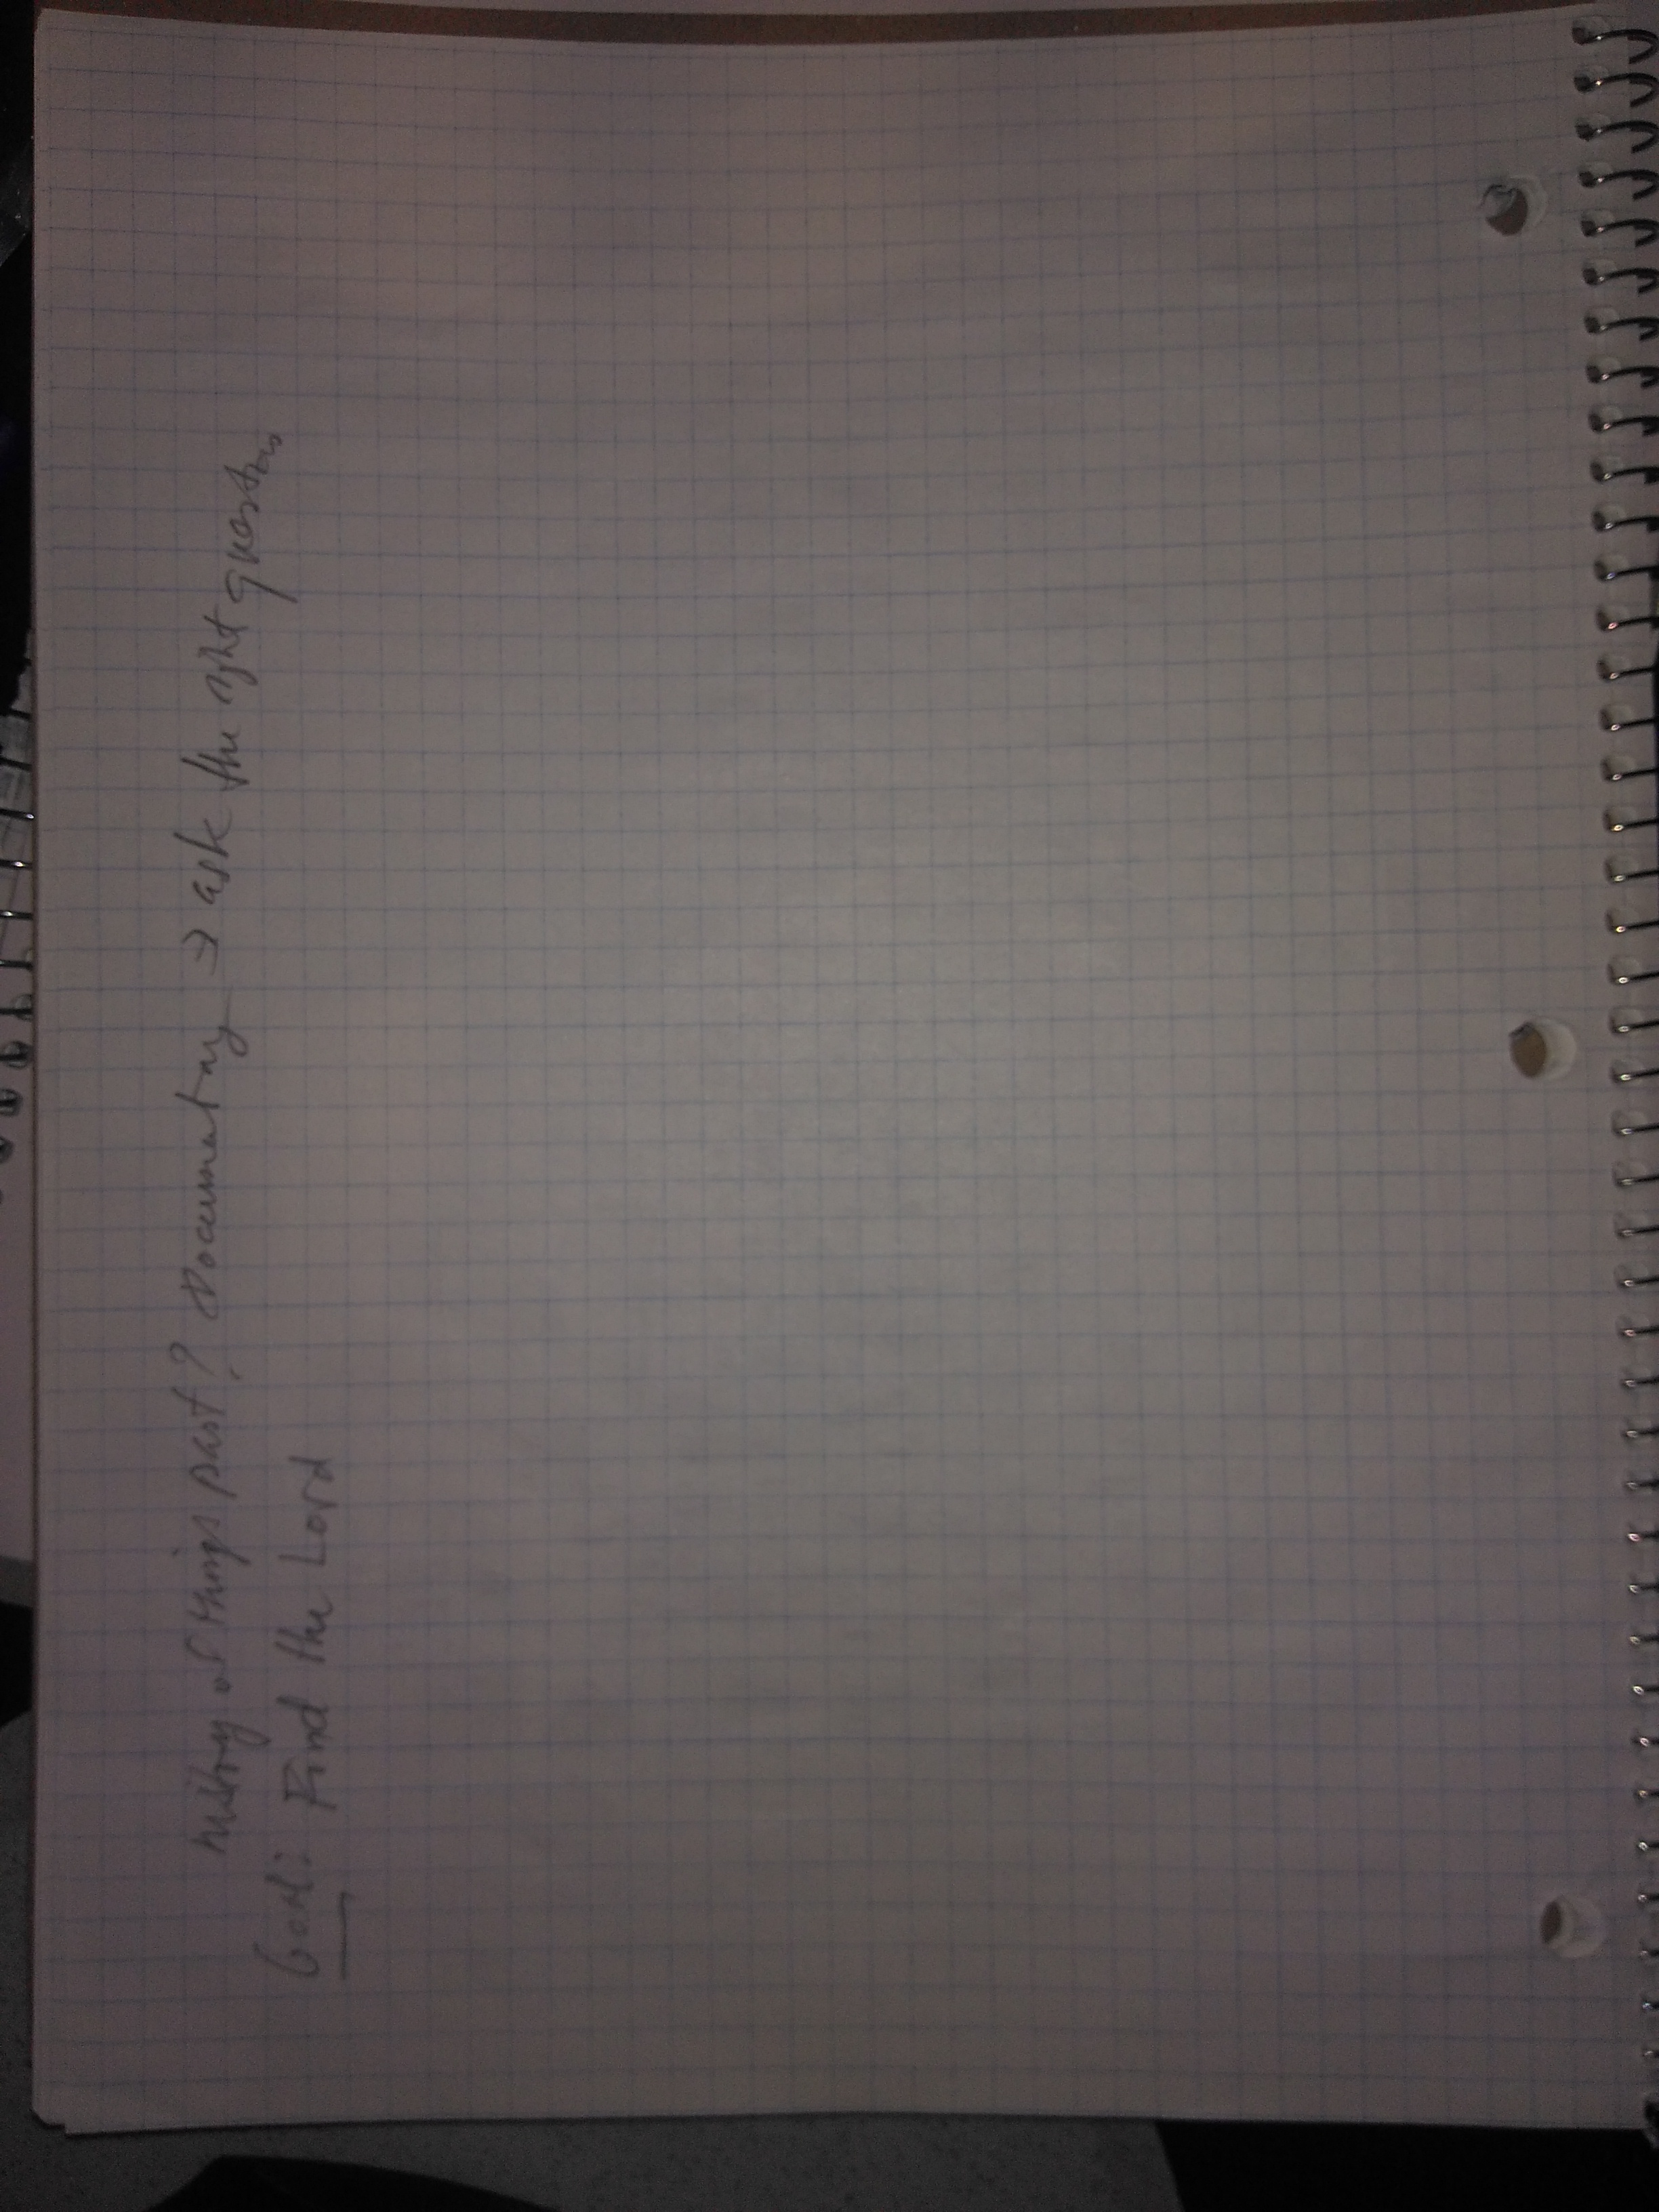 history of things past? Documentary → ask the right questions
Goal: Find the Lord